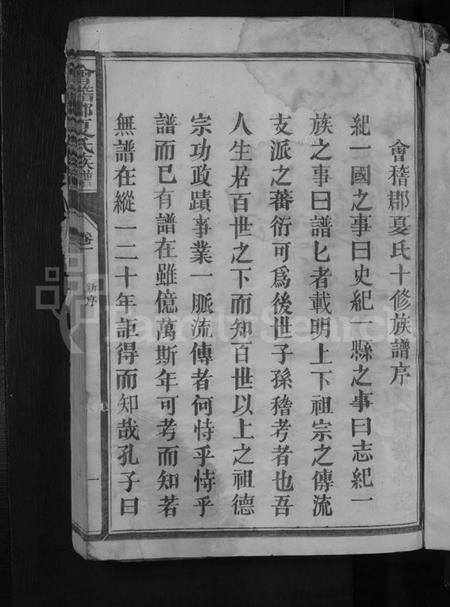 會稽郡夏氏十修族譜序
紀一國之事曰史紀一縣之事曰志紀一
族之事曰譜匕者載明上下祖宗之傳流
支派之蕃衍可為後世子孫稽考者也吾
人生居百世之下而知百世以上之祖德
宗功政蹟事業一脈流傳者何恃乎恃乎
譜而已有譜在雖億萬斯年可考而知若
無譜在縱一二十年詎得而知哉孔子曰
會稽郡夏氏族譜
卷一
新序
一